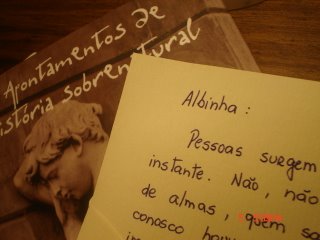 Apontamentos de
História Sobrenatural
Albinha:
Pessoas surgem
instante. Não, não
de almas, quem
conosco